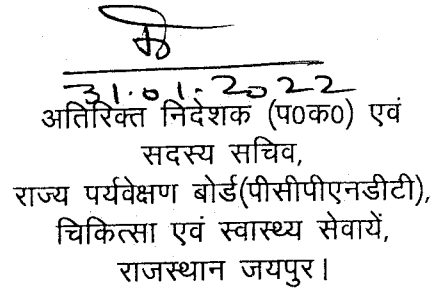 31.01.2022
अतिरिक्त निदेशक (प0क0) एवं
सदस्य सचिव,
राज्य पर्यवेक्षण बोर्ड(पीसीपीएनडीटी),
चिकित्सा एवं स्वास्थ्य सेवायें,
राजस्थान जयपुर।